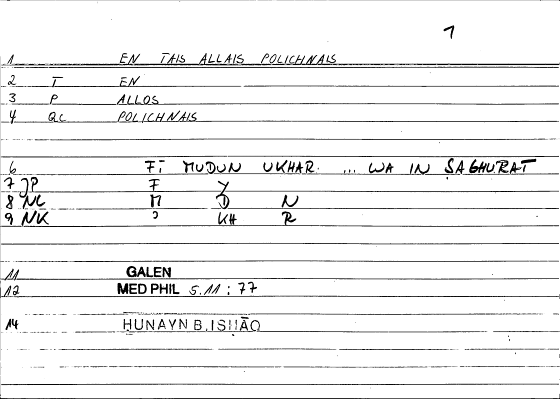 1
1 EN TAIS ALLAIS POLICHNAIS
2 T EN
3 P ALLOS
4 QC POLICHNAIS
6 FĪ MUDUN UKHAR ... WA IN ṢAGHURAT
7 JP F Y
8 NC M D N
9 NK ' KH R
11 GALEN
12 MED PHIL 5.11 : 77
14 ḤUNAYN B. ISḤĀQ